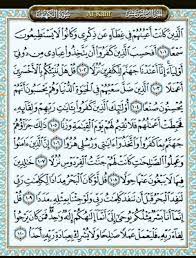 سُورَةُ الكَهْفِ Al-Kahf
ٱلَّذِينَ كَانَتْ أَعْيُنُهُمْ فِى غِطَآءٍ عَن ذِكْرِى وَكَانُوا۟ لَا يَسْتَطِيعُونَ
سَمْعًا ١٠١ أَفَحَسِبَ ٱلَّذِينَ كَفَرُوٓا۟ أَن يَتَّخِذُوا۟ عِبَادِى مِن دُونِىٓ
أَوْلِيَآءَ إِنَّآ أَعْتَدْنَا جَهَنَّمَ لِلْكَٰفِرِينَ نُزُلًا ١٠٢ قُلْ هَلْ نُنَبِّئُكُم بِٱلْأَخْسَرِينَ
أَعْمَٰلًا ١٠٣ ٱلَّذِينَ ضَلَّ سَعْيُهُمْ فِى ٱلْحَيَوٰةِ ٱلدُّنْيَا وَهُمْ يَحْسَبُونَ أَنَّهُمْ
يُحْسِنُونَ صُنْعًا ١٠٤ أُو۟لَٰٓئِكَ ٱلَّذِينَ كَفَرُوا۟ بِـَٔايَٰتِ رَبِّهِمْ وَلِقَآئِهِۦ فَحَبِطَتْ
أَعْمَٰلُهُمْ فَلَا نُقِيمُ لَهُمْ يَوْمَ ٱلْقِيَٰمَةِ وَزْنًا ١٠٥ ذَٰلِكَ جَزَآؤُهُمْ جَهَنَّمُ بِمَا
كَفَرُوا۟ وَٱتَّخَذُوٓا۟ ءَايَٰتِى وَرُسُلِى هُزُوًا ١٠٦ إِنَّ ٱلَّذِينَ ءَامَنُوا۟ وَعَمِلُوا۟
ٱلصَّٰلِحَٰتِ كَانَتْ لَهُمْ جَنَّٰتُ ٱلْفِرْدَوْسِ نُزُلًا ١٠٧ خَٰلِدِينَ
فِيهَا لَا يَبْغُونَ عَنْهَا حِوَلًا ١٠٨ قُل لَّوْ كَانَ ٱلْبَحْرُ مِدَادًا لِّكَلِمَٰتِ رَبِّى
لَنَفِدَ ٱلْبَحْرُ قَبْلَ أَن تَنفَدَ كَلِمَٰتُ رَبِّى وَلَوْ جِئْنَا بِمِثْلِهِۦ مَدَدًا ١٠٩ قُلْ
إِنَّمَآ أَنَا۠ بَشَرٌ مِّثْلُكُمْ يُوحَىٰٓ إِلَىَّ أَنَّمَآ إِلَٰهُكُمْ إِلَٰهٌ وَٰحِدٌ فَمَن كَانَ يَرْجُوا۟
لِقَآءَ رَبِّهِۦ فَلْيَعْمَلْ عَمَلًا صَٰلِحًا وَلَا يُشْرِكْ بِعِبَادَةِ رَبِّهِۦٓ أَحَدًۢا ١١٠